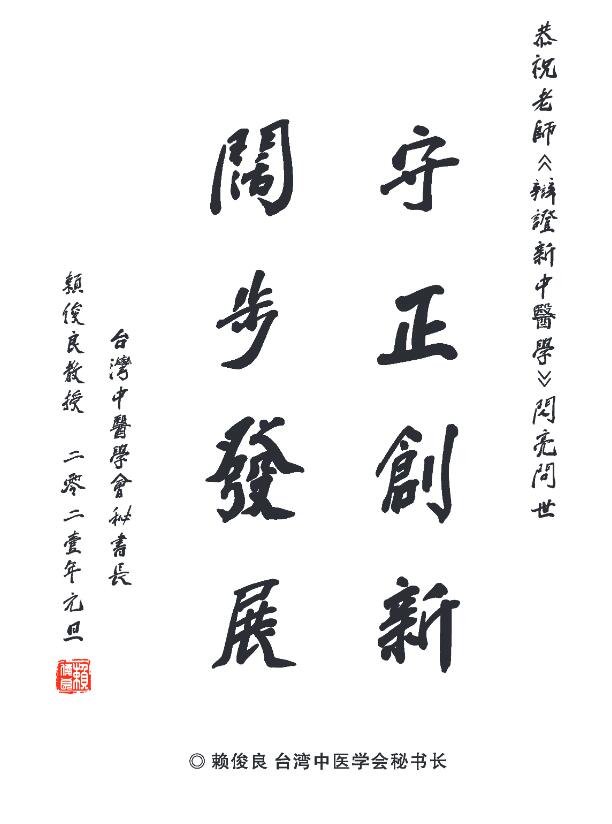 恭祝老師《辯證新中醫學》閃亮問世
守正創新
闊步發展
台灣中醫學會秘書長
賴俊良教授 二零二壹年元旦
賴俊良
◎ 赖俊良 台湾中医学会秘书长